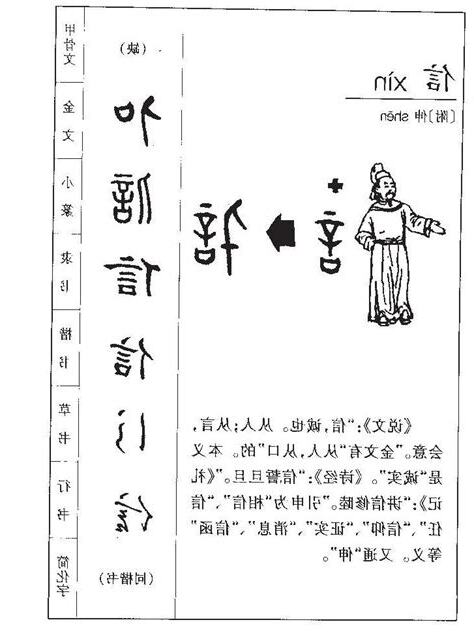 信
xìn
〔附〕伸 shēn
+
言
信
《说文》:“信,诚也。从人;从言,
会意。”金文有“从人,从口”的。本义
是“诚实”。《诗经》:“信誓旦旦。”《礼
记》:“讲信修睦。”引申为“相信”、“信
任”、“信仰”、“证实”、“消息”、“信函”
等义。又通“伸”。
甲骨文 (缺)
金文
小篆 信
隶书 信
楷书 信
草书 信
行书 信
简化字 (同楷书)